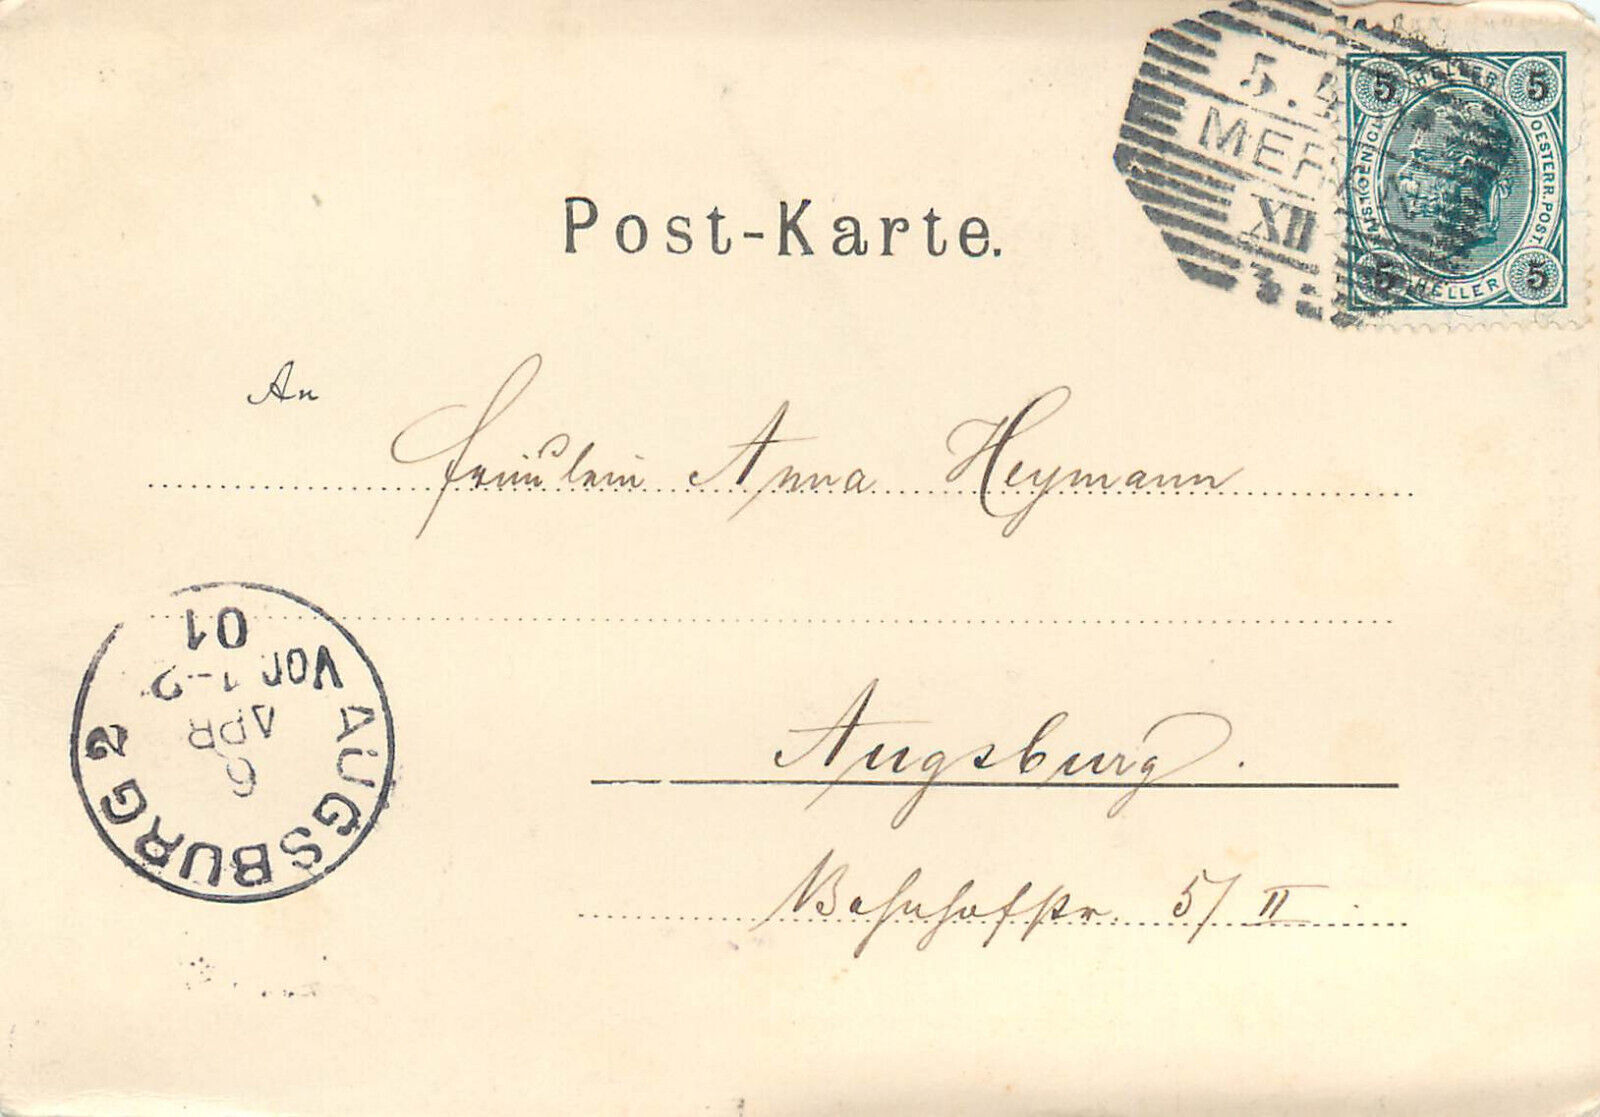 5.4
MER
XII
3
5 HELLER 5
KAIS. KOENIGL. OESTERR. POST.
5 HELLER 5
Post-Karte.
An
Fräulein Anna Heymann
Augsburg.
Bahnhofstr. 5/II
AUGSBURG 2
6
APR
Vor. 1-2
01